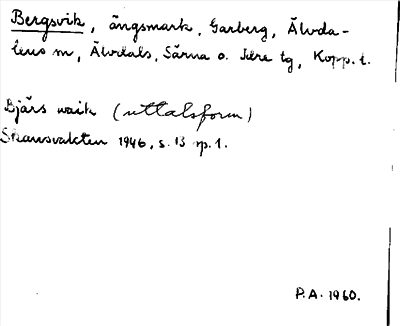 Bergsvik, ängsmark, Garberg, Älvda-
lens sn, Älvdals, Särna o. Idre tg, Kopp. l.
Bjärs waik (uttalsform)
Skansvakten 1946, s. 13 sp. 1.
P.A. 1960.